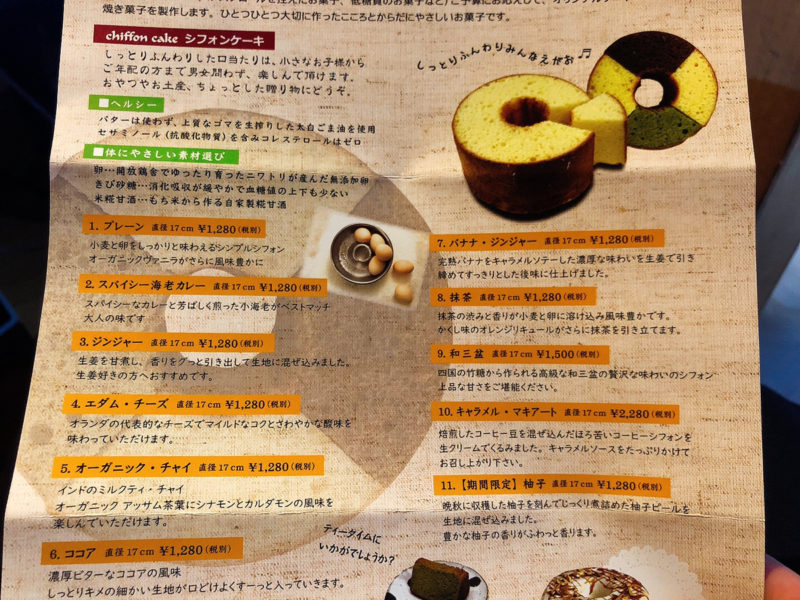 焼き菓子を製作します。ひとつひとつ大切に作ったこころとからだにやさしいお菓子です。
chiffon cake シフォンケーキ
しっとりふんわりした口当たりは、小さなお子様から
ご年配の方まで男女問わず、楽しんで頂けます。
おやつやお土産、ちょっとした贈り物にどうぞ。
しっとりふんわりみんなえがお♫
■ヘルシー
バターは使わず、上質なゴマを生搾りした太白ごま油を使用
セサミノール(抗酸化物質)を含みコレステロールはゼロ
■体にやさしい素材選び
卵…開放鶏舎でゆったり育ったニワトリが産んだ無添加卵
きび砂糖…消化吸収が緩やかで血糖値の上下も少ない
米糀甘酒…もち米から作る自家製糀甘酒
1. プレーン 直径17cm ¥1,280(税別)
小麦と卵をしっかりと味わえるシンプルシフォン
オーガニックヴァニラがさらに風味豊かに
2. スパイシー海老カレー 直径17cm ¥1,280(税別)
スパイシーなカレーと芳ばしく煎った小海老がベストマッチ
大人の味です
3. ジンジャー 直径17cm ¥1,280(税別)
生姜を甘煮し、香りをグっと引き出して生地に混ぜ込みました。
生姜好きの方へおすすめです。
4. エダム・チーズ 直径17cm ¥1,280(税別)
オランダの代表的なチーズでマイルドなコクとさわやかな酸味を
味わっていただけます。
5. オーガニック・チャイ 直径17cm ¥1,280(税別)
インドのミルクティ・チャイ
オーガニック アッサム茶葉にシナモンとカルダモンの風味を
楽しんでいただけます。
6. ココア 直径17cm ¥1,280(税別)
濃厚ビターなココアの風味
しっとりキメの細かい生地が口どけよくすーっと入っていきます。
7. バナナ・ジンジャー 直径17cm ¥1,280(税別)
完熟バナナをキャラメルソテーした濃厚な味わいを生姜で引き
締めてすっきりとした後味に仕上げました。
8. 抹茶 直径17cm ¥1,280(税別)
抹茶の渋みと香りが小麦と卵に溶け込み風味豊かです。
かくし味のオレンジリキュールがさらに抹茶を引き立てます。
9. 和三盆 直径17cm ¥1,500(税別)
四国の竹糖から作られる高級な和三盆の贅沢な味わいのシフォン
上品な甘さをご堪能ください。
10. キャラメル・マキアート 直径17cm ¥2,280(税別)
焙煎したコーヒー豆を混ぜ込んだほろ苦いコーヒーシフォンを
生クリームでくるみました。キャラメルソースをたっぷりかけて
お召し上がり下さい。
11.【期間限定】柚子 直径17cm ¥1,280(税別)
晩秋に収穫した柚子を刻んでじっくり煮詰めた柚子ピールを
生地に混ぜ込みました。
豊かな柚子の香りがふわっと香ります。
ティータイムに
いかがでしょうか?